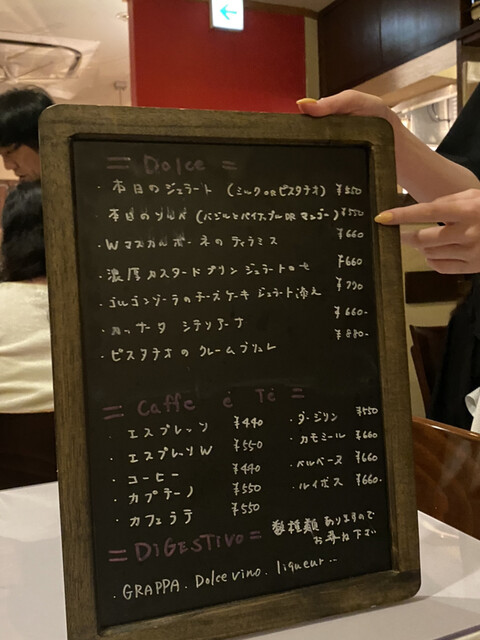 = Dolce =
・本日のジェラート (ミルクorピスタチオ) ¥550
・本日のソルベ (バジルとパイナップル or マンゴー) ¥550
・Wマスカルポーネのティラミス ¥660
・濃厚カスタードプリン ジェラートのせ ¥660
・ゴルゴンゾーラのチーズケーキ ジェラート添え ¥770
・カッサータ シチリアーナ ¥660-
・ピスタチオのクレームブリュレ ¥880-
= Caffe e Te =
・エスプレッソ ¥440
・エスプレッソW ¥550
・コーヒー ¥440
・カプチーノ ¥550
・カフェラテ ¥550
・ダージリン ¥550
・カモミール ¥660
・ベルベーヌ ¥660
・ルイボス ¥660-
= DIGESTIVO =
数種類ありますので
お尋ね下さい
・GRAPPA. Dolce vino. liqueur...